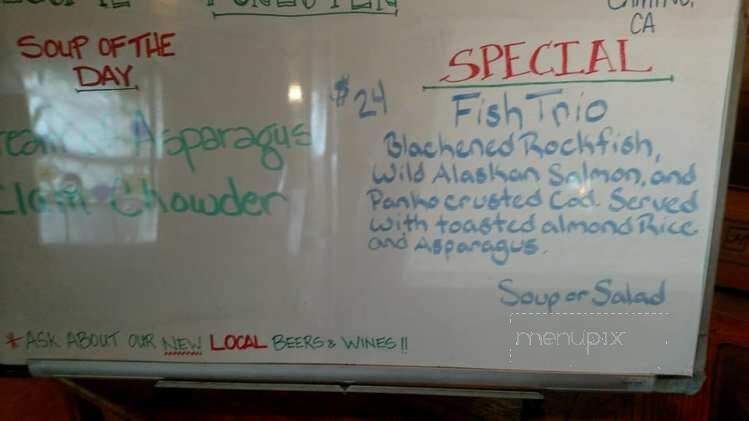 CAMINO,
CA
SOUP OF THE
DAY
Asparagus
Clam Chowder
SPECIAL
$24
Fish Trio
Blackened Rockfish,
Wild Alaskan Salmon, and
Panko crusted Cod. Served
with toasted almond Rice
and Asparagus.
Soup or Salad
* ASK ABOUT OUR NEW LOCAL BEERS & WINES!!
menupix